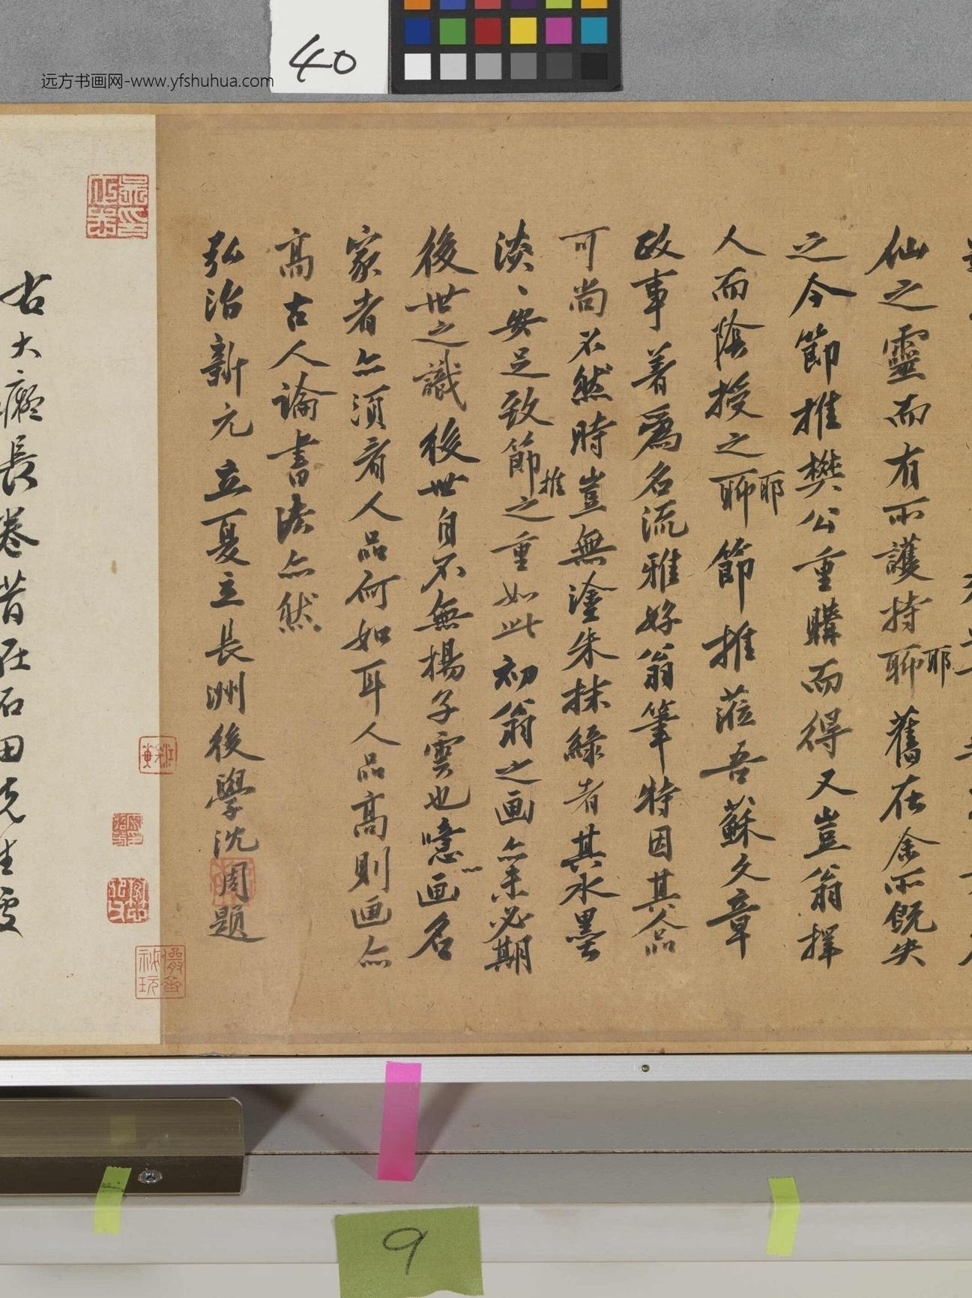 40
远方书画网-www.yfshuhua.com
仙之靈而有所護持耶聊舊在余所既失
之今節推樊公重購而得又豈翁揮
人而陰授之耶聊節推蒞吾蘇文章
政事著為名流雅好翁筆特因其人品
可尚不然時豈無塗朱抹綠者其水墨
淡〻安足致節推之重如此初翁之画亦未必期
後世之識後世自不無揚子雲也噫画名
家者亦須看人品何如耳人品高則画亦
高古人論書法亦然
弘治新元立夏立長洲後學沈周題
古大癡長卷昔在石田先生處
9